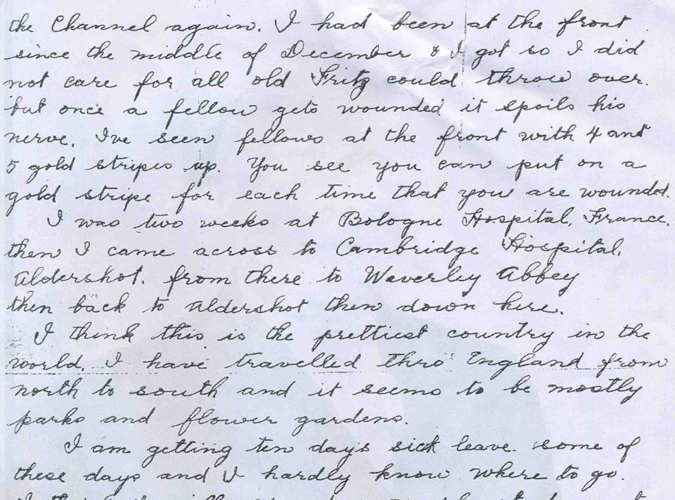 the Channel again. I had been at the front
since the middle of December & I got so I did
not care for all old Fritz could throw over.
but once a fellow gets wounded it spoils his
nerve. I've seen fellows at the front with 4 and
5 gold stripes up. You see you can put on a
gold stripe for each time that you are wounded.
I was two weeks at Bologne Hospital, France.
then I came across to Cambridge Hospital,
Aldershot. from there to Waverley Abbey
then back to Aldershot then down here.
I think this is the prettiest country in the
world. I have travelled thro England from
north to south and it seems to be mostly
parks and flower gardens.
I am getting ten days sick leave some of
these days and I hardly know where to go.